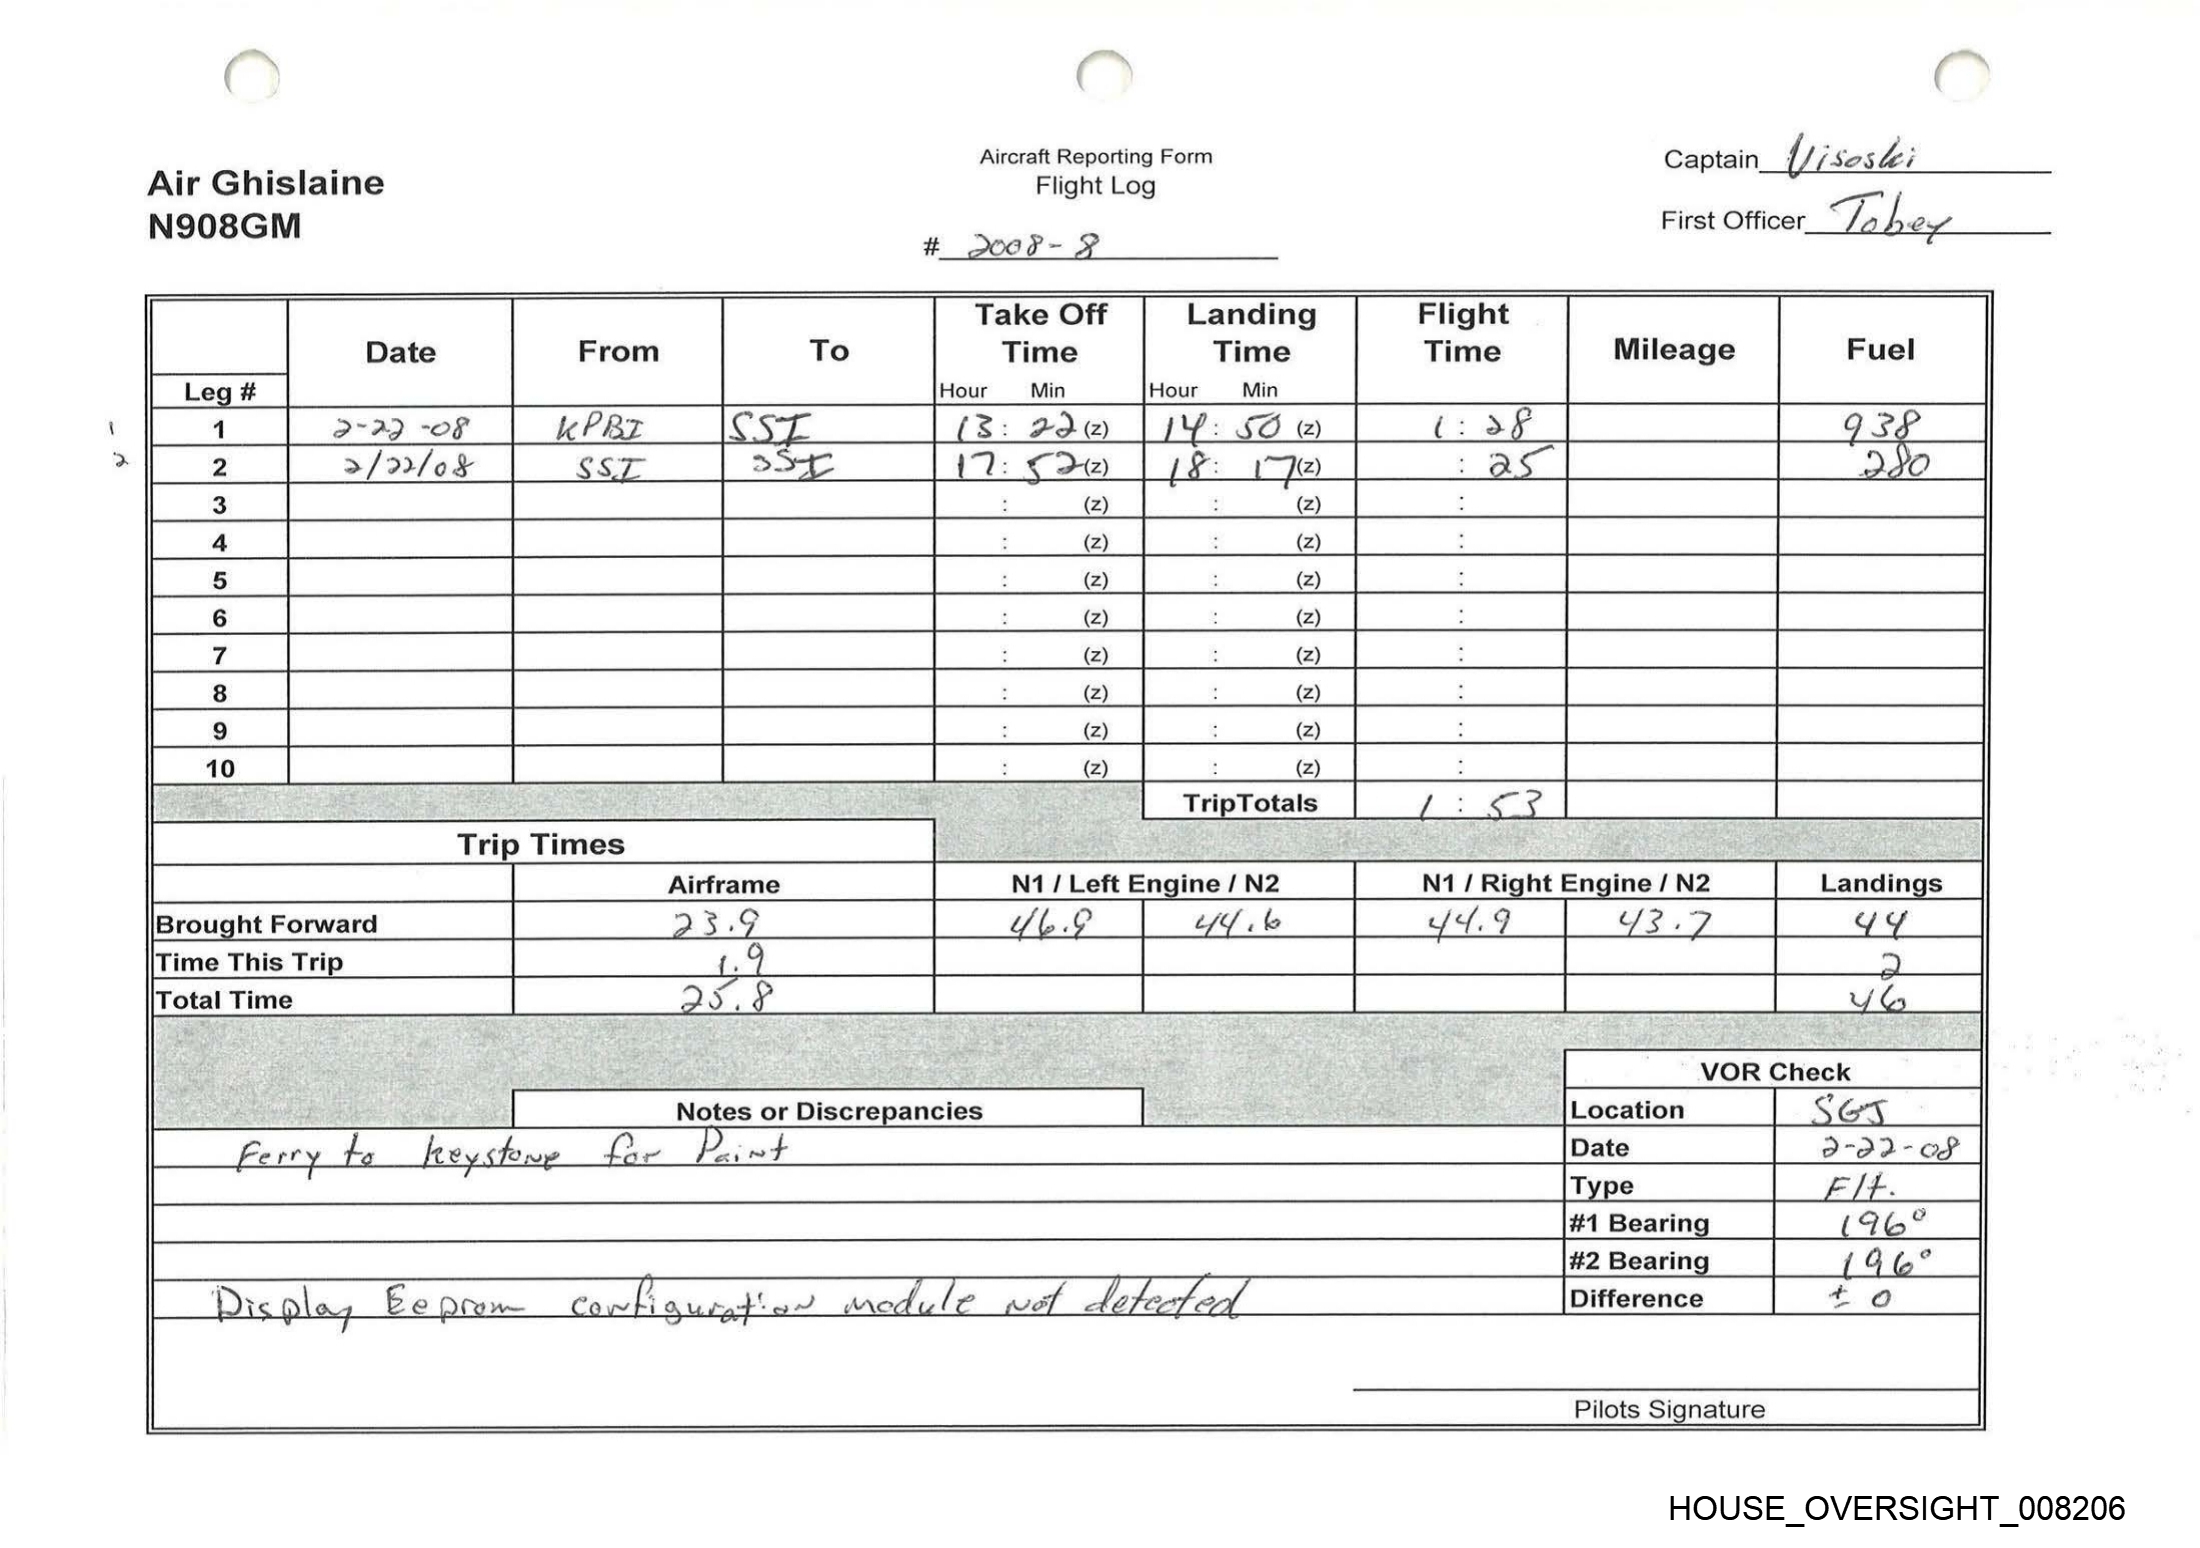 Air Ghislaine
N908GM
Aircraft Reporting Form
Flight Log
# 2008-8
Captain Visoski
First Officer Tobey
Leg # Date From To Take Off Time Hour Min Landing Time Hour Min Flight Time Mileage Fuel
1 1 2-22-08 KPBI SSI 13:22 (z) 14:50 (z) 1:28 938
2 2 2/22/08 SSI SSI 17:52 (z) 18:17 (z) :25 280
3 : (z) : (z) :
4 : (z) : (z) :
5 : (z) : (z) :
6 : (z) : (z) :
7 : (z) : (z) :
8 : (z) : (z) :
9 : (z) : (z) :
10 : (z) : (z) :
TripTotals 1:53
Trip Times
Airframe N1 / Left Engine / N2 N1 / Right Engine / N2 Landings
Brought Forward 23.9 46.9 44.6 44.9 43.7 44
Time This Trip 1.9 2
Total Time 25.8 46
VOR Check
Notes or Discrepancies
Location SGJ
Ferry to Keystone for Paint
Date 2-22-08
Type Flt.
#1 Bearing 196°
#2 Bearing 196°
Display Eeprom configuration module not detected
Difference ± 0
Pilots Signature
HOUSE_OVERSIGHT_008206